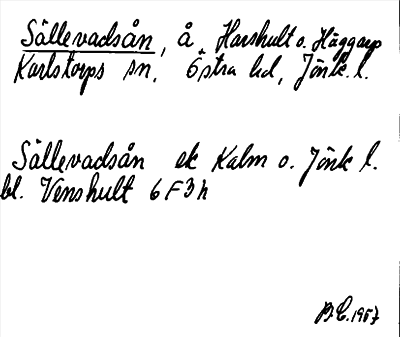 Sällevadsån, å Harshult o. Häggarp
Karlstorps sn, Östra hd, Jönk. l.
Sällevadsån ek Kalm o. Jönk l.
bl. Venshult 6F3h
B.E. 1957